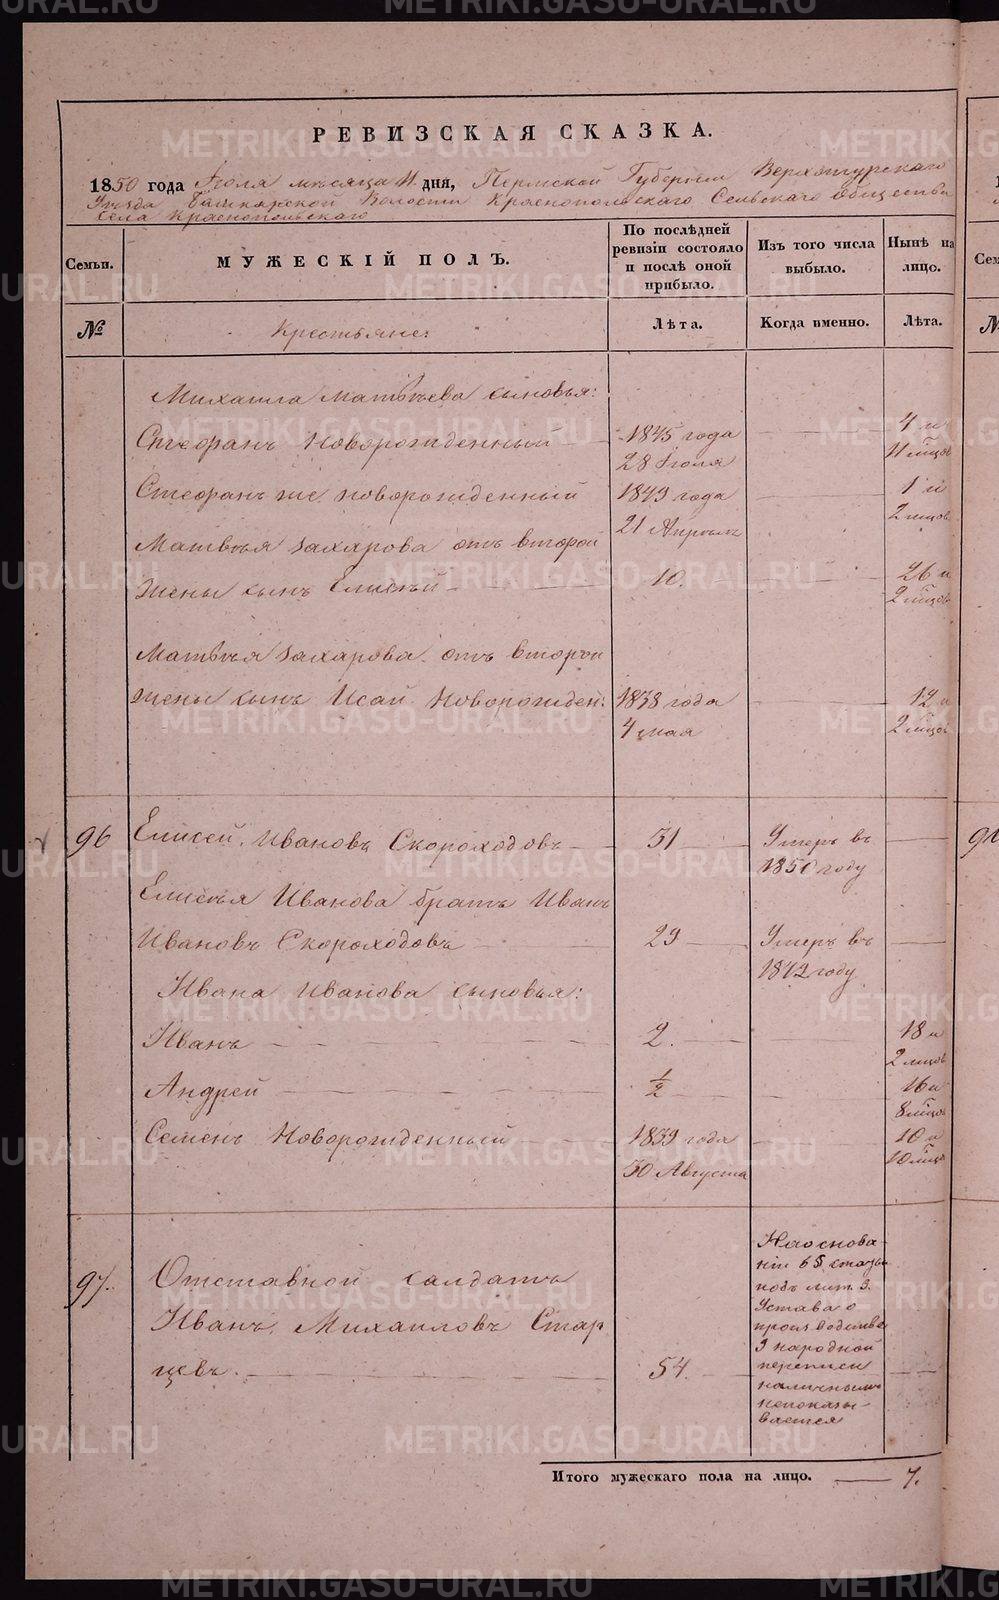 РЕВИЗСКАЯ СКАЗКА.
1850 года Іюля мѣсяца 11 дня, Пермской Губерніи Верхотурскаго
Уѣзда Башкарской Волости Краснопольскаго Сельскаго Общества
Села Краснопольскаго
Семьи.
МУЖЕСКІЙ ПОЛЪ.
По послѣдней ревизіи состояло и послѣ оной прибыло.
Изъ того числа выбыло.
Нынѣ на лицо.
№
Крестьяне:
Лѣта.
Когда именно.
Лѣта.
Михаила Матвѣева сыновья:
Стефанъ Новорожденный 1845 года 4 и
28 Іюля 11 мѣцов
Стефанъ же новорожденный 1849 года 1 и
21 Апрѣля 2 мѣцов
Матвѣя Захарова отъ второй
жены сынъ Елисѣй 10. 26 и
2 мѣцов
Матвѣя Захарова отъ второй
жены сынъ Исай Новорожден: 1838 года 12 и
4 мая 2 мѣцов
96 Елисей Ивановъ Скороходовъ 31 Умеръ въ
1850 году
Елисѣя Иванова братъ Иванъ
Ивановъ Скороходовъ 29 Умеръ въ
1842 году
Ивана Иванова сыновья:
Иванъ 2. 18 и
2 мѣцов
Андрей ½ 16 и
8 мѣцов
Семенъ Новорожденный 1839 года 10 и
30 Августа 10 мѣцо
97. Отставной салдатъ
Иванъ Михаиловъ Стар
цевъ. 54.
На основа-
ніи 65 статьи
подъ лит. З.
Устава о
производствѣ
9 народной
переписи
наличнымъ
непоказы-
вается
Итого мужескаго пола на лицо. 7.